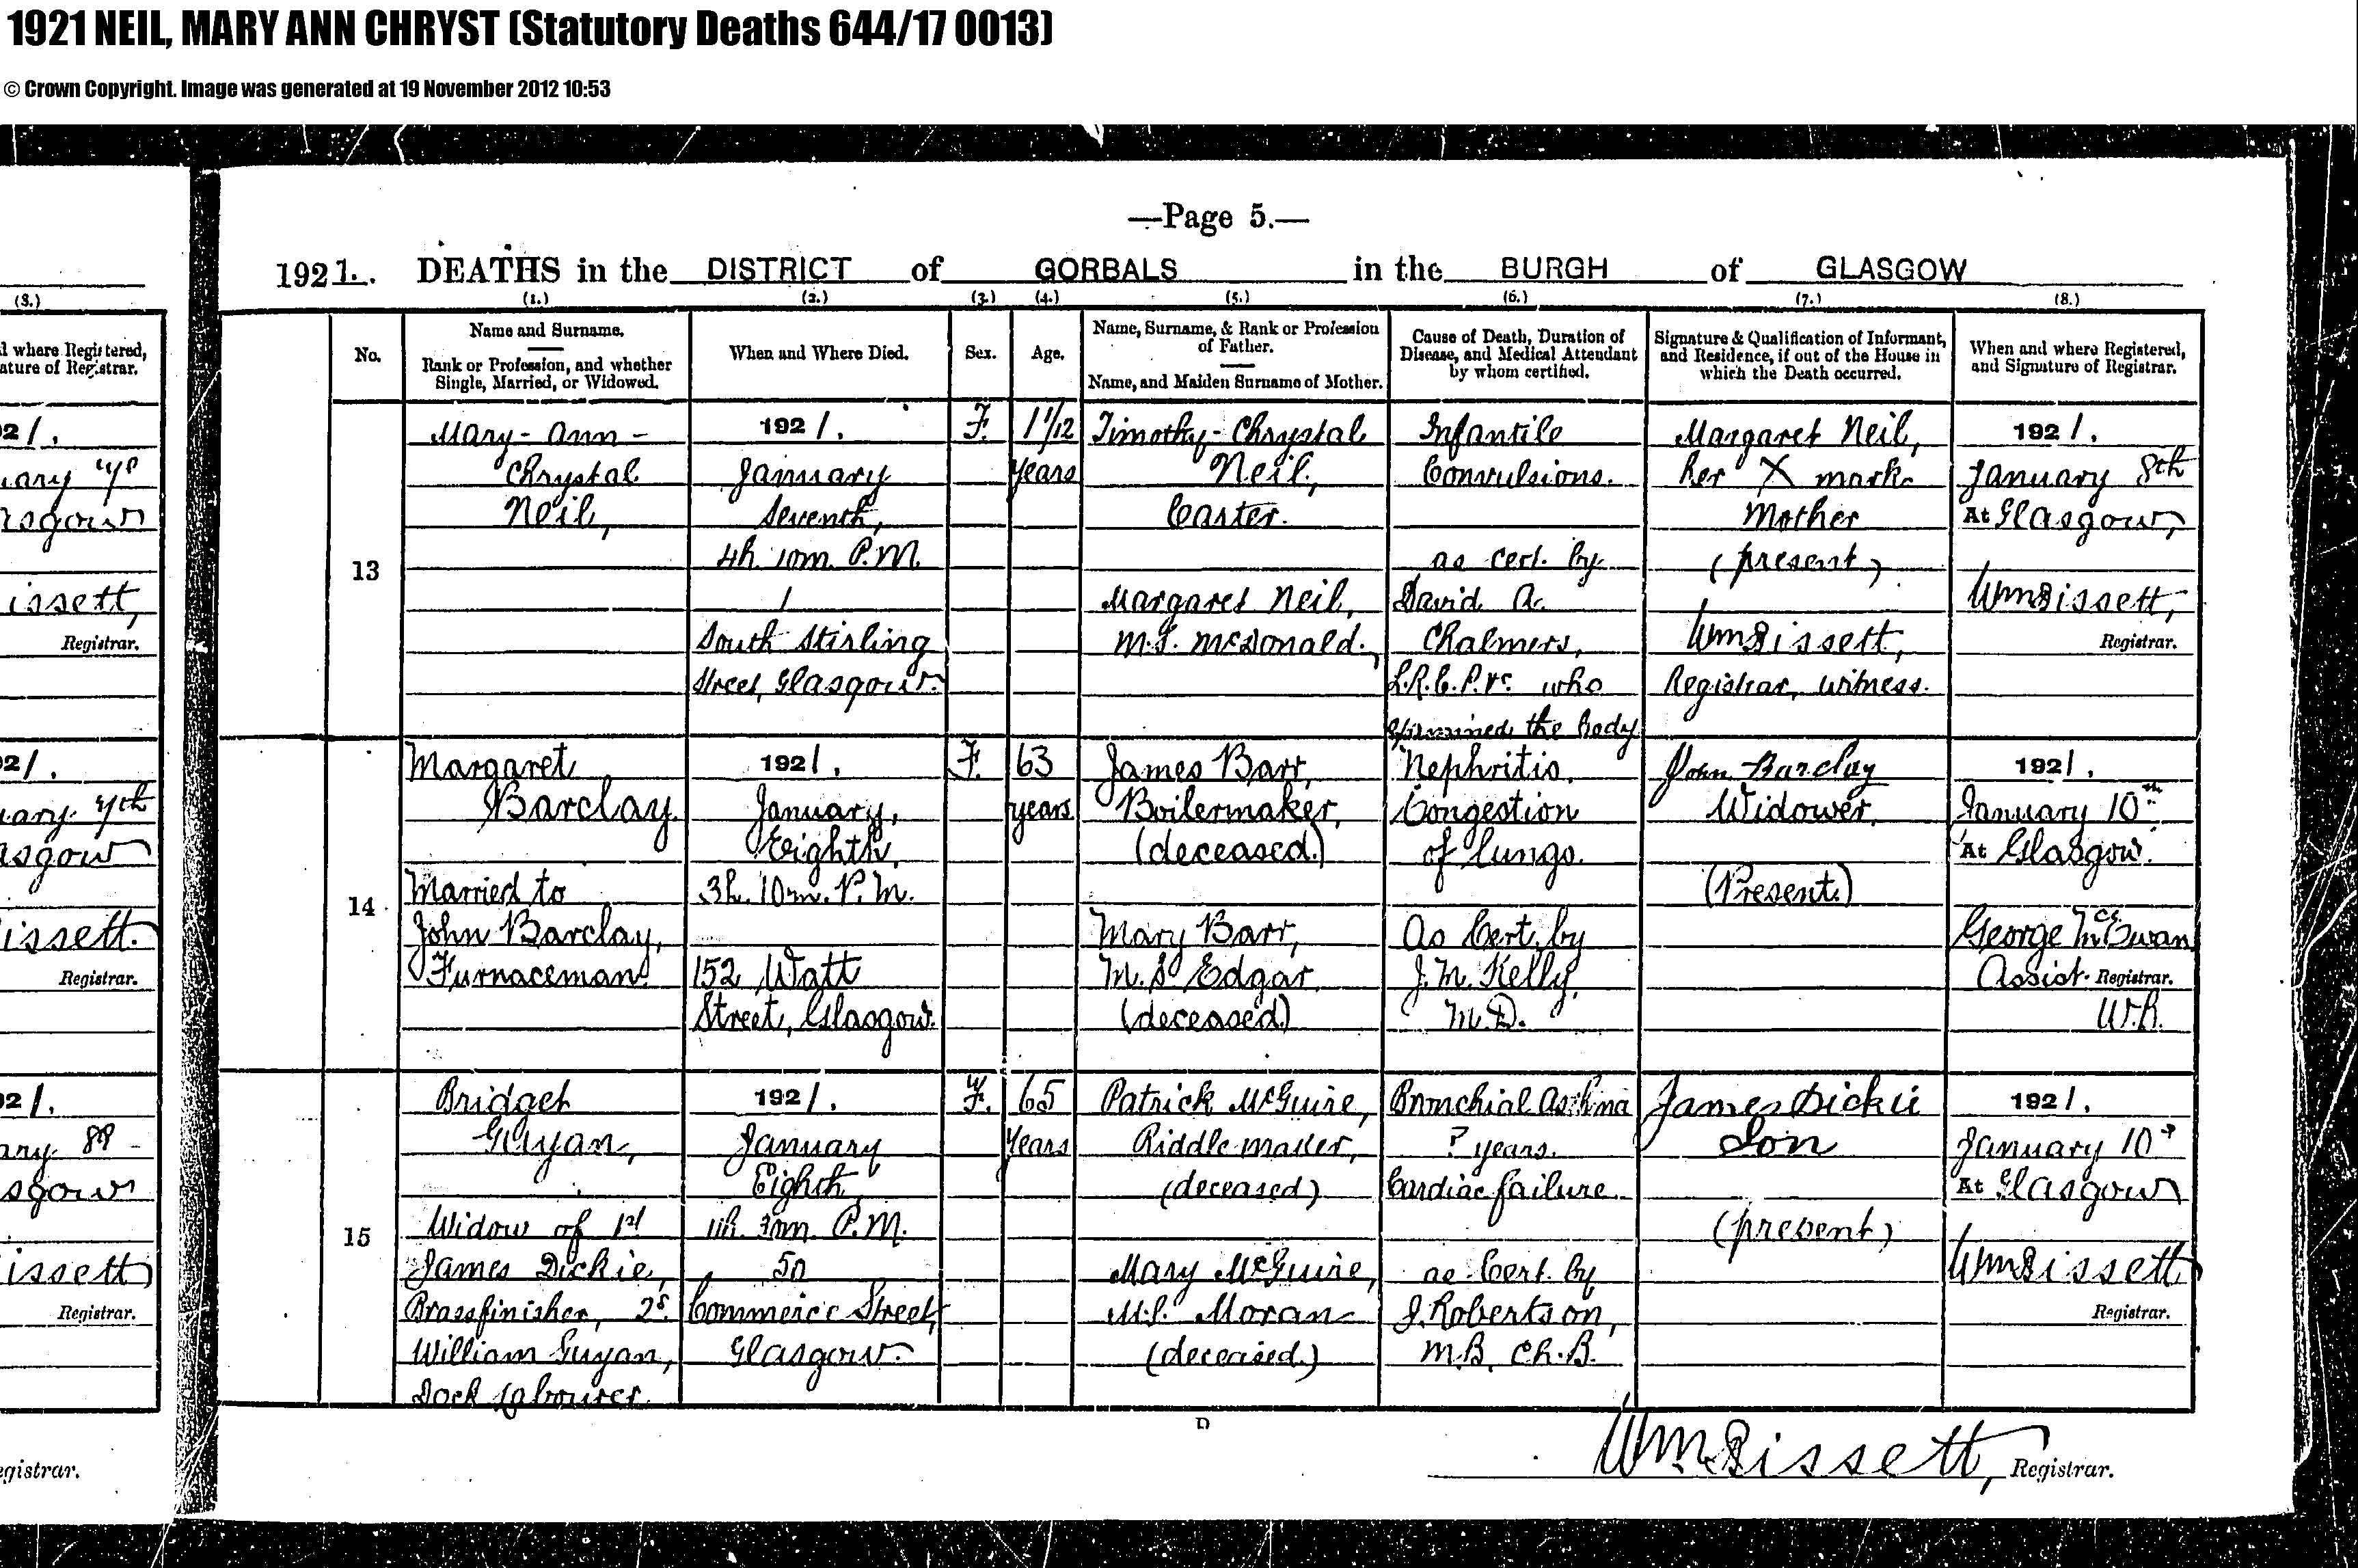 1921 NEIL, MARY ANN CHRYST (Statutory Deaths 644/17 0013)
© Crown Copyright. Image was generated at 19 November 2012 10:53
—Page 5.—
1921. DEATHS in the DISTRICT of GORBALS in the BURGH of GLASGOW
(1.) (2.) (3.) (4.) (5.) (6.) (7.) (8.)
No.
Name and Surname.
Rank or Profession, and whether
Single, Married, or Widowed.
When and Where Died.
Sex.
Age.
Name, Surname, & Rank or Profession
of Father.
Name, and Maiden Surname of Mother.
Cause of Death, Duration of
Disease, and Medical Attendant
by whom certified.
Signature & Qualification of Informant,
and Residence, if out of the House in
which the Death occurred.
When and where Registered,
and Signature of Registrar.
13
Mary-Ann-
Chrystal
Neil,
1921.
January
Seventh,
4h. 10m. P.M.
1
South Stirling
Street, Glasgow.
F.
1 1/12
years
Timothy-Chrystal
Neil,
Carter.
Margaret Neil,
M.S. McDonald.
Infantile
Convulsions.
as cert. by
David A.
Chalmers,
L.R.C.P. &c. who
examined the body
Margaret Neil,
her X mark
Mother
(present)
Wm Bissett,
Registrar, witness.
1921.
January 8th
At Glasgow,
Wm Bissett,
Registrar.
14
Margaret
Barclay.
Married to
John Barclay,
Furnaceman.
1921.
January,
Eighth,
3h. 10m. P.M.
152 Watt
Street, Glasgow.
F.
63
years.
James Barr,
Boilermaker,
(deceased.)
Mary Barr,
M.S. Edgar.
(deceased.)
Nephritis.
Congestion
of lungs.
As Cert. by
J. M. Kelly,
M.D.
John Barclay
Widower.
(Present.)
1921.
January 10th
At Glasgow.
George McEwan
Assist. Registrar.
W.B.
15
Bridget
Guyan,
Widow of 1st
James Dickie,
Brassfinisher, 2d.
William Guyan,
Dock Labourer.
1921.
January
Eighth,
11h. 30m. P.M.
50
Commerce Street,
Glasgow.
F.
65
years
Patrick McGuire,
Riddle maker,
(deceased)
Mary McGuire,
M.S. Moran
(deceased.)
Bronchial Asthma
? years.
Cardiac failure.
as Cert. by
J. Robertson,
M.B. Ch.B.
James Dickie
Son
(present)
1921.
January 10th
At Glasgow
Wm Bissett
Registrar.
D
Wm Bissett, Registrar.